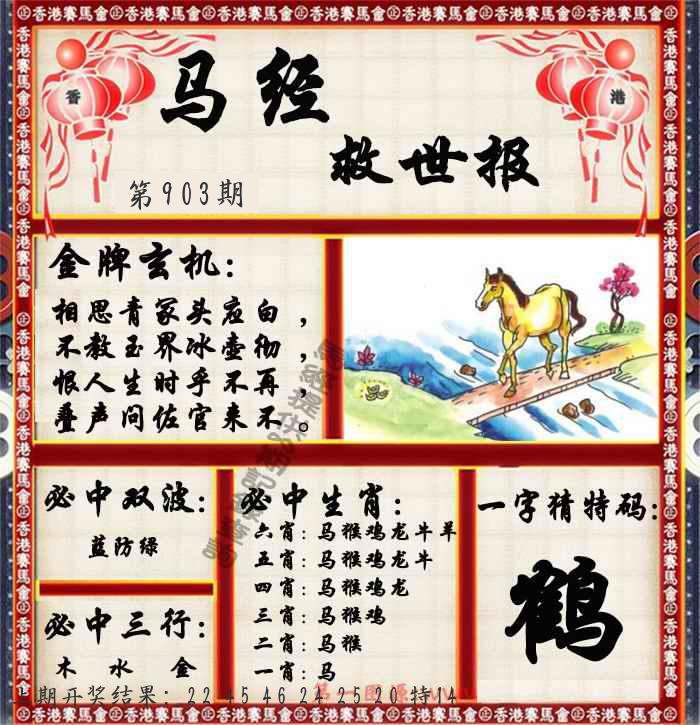 香港賽馬會
香 港
马经
救世报
第903期
金牌玄机：
相思青冢头应白，
不教玉界冰壶彻，
恨人生时乎不再，
叠声问佐官来不。
必中双波：
蓝防绿
必中三行：
木 水 金
必中生肖：
六肖：马猴鸡龙牛羊
五肖：马猴鸡龙牛
四肖：马猴鸡龙
三肖：马猴鸡
二肖：马猴
一肖：马
一字猜特码：
鹤
期开奖结果：22 45 46 24 25 20 特 4
第一图源